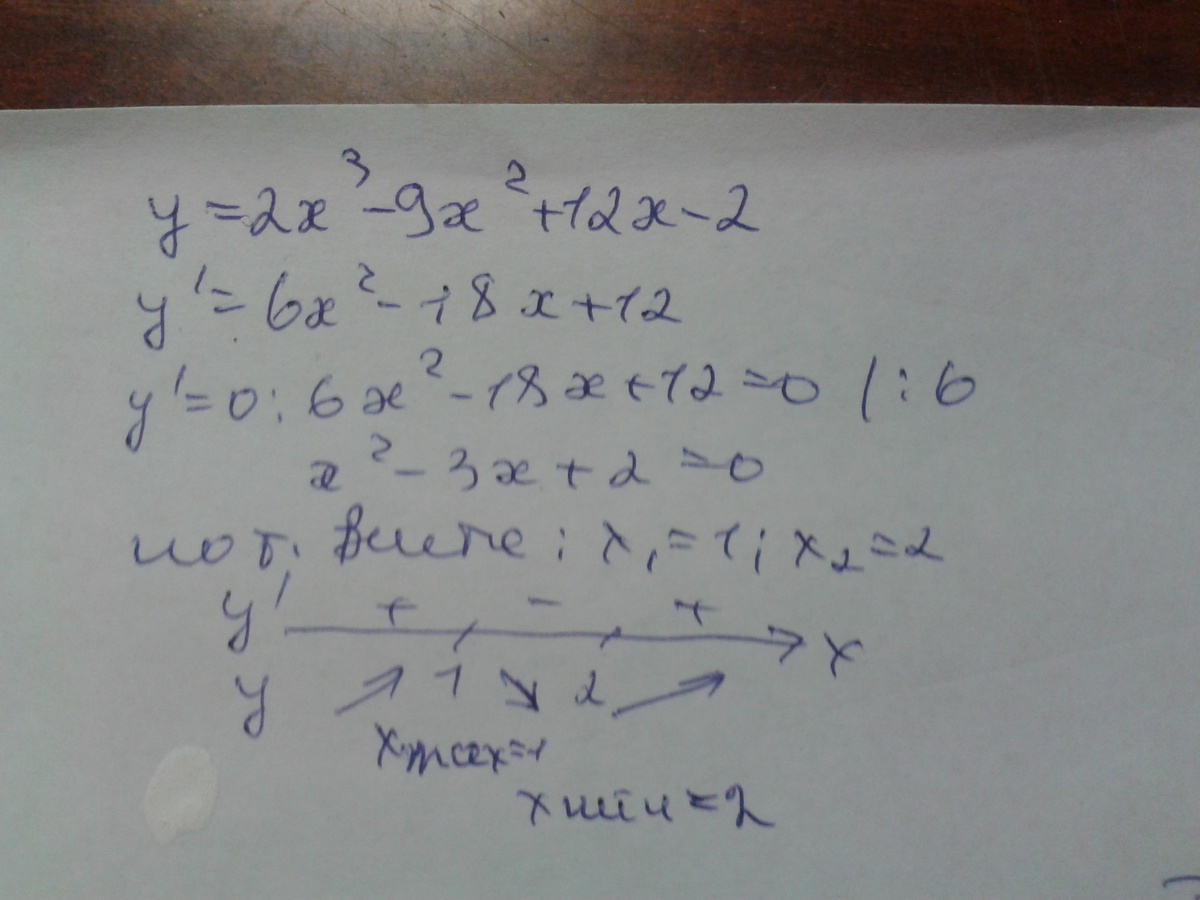 y = 2x³ - 9x² + 12x - 2
y' = 6x² - 18x + 12
y' = 0 : 6x² - 18x + 12 = 0 / : 6
x² - 3x + 2 = 0
по т. Виете : x₁ = 1 ; x₂ = 2
y' + - + x
y 1 2
xmax = 1
xmin = 2